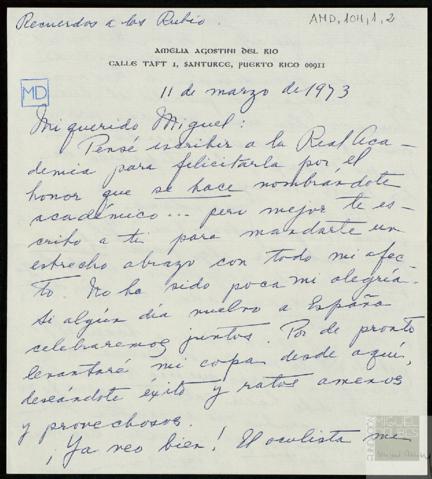 Recuerdos a los Rubio.
AMD, 104, 1, 2
AMELIA AGOSTINI DEL RIO
CALLE TAFT 1, SANTURCE, PUERTO RICO 00911
MD
11 de marzo de 1973
Mi querido Miguel:
Pensé escribir a la Real Aca-
demia para felicitarla por el
honor que se hace nombrándote
académico... pero mejor te es-
cribo a ti para mandarte un
estrecho abrazo con todo mi afec-
to. No ha sido poca mi alegría.
Si algún día vuelvo a España
celebraremos juntos. Por de pronto
levantaré mi copa desde aquí,
deseándote éxito y ratos amenos
y provechosos.
¡Ya veo bien! El oculista me
MIGUEL